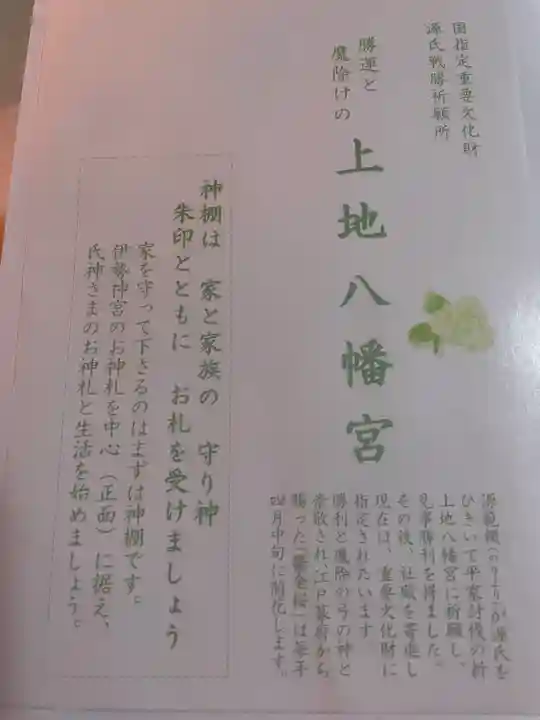 国指定重要文化財
源氏戦勝祈願所
勝運と
魔除けの
上地八幡宮
源範頼(のりより)が源氏を
ひきいて平家討伐の折
上地八幡宮に祈願し、
見事勝利を得ました。
その後、社殿を寄進し
現在は、重要文化財に
指定されています
勝利と魔除の弓の神と
崇敬され、江戸幕府から
賜った「鬱金桜」は毎年
四月中旬に開花します。
神棚は 家と家族の 守り神
朱印とともに お札を受けましょう
家を守って下さるのはまずは神棚です。
伊勢神宮のお神札を中心(正面)に据え、
氏神さまのお神札と生活を始めましょう。